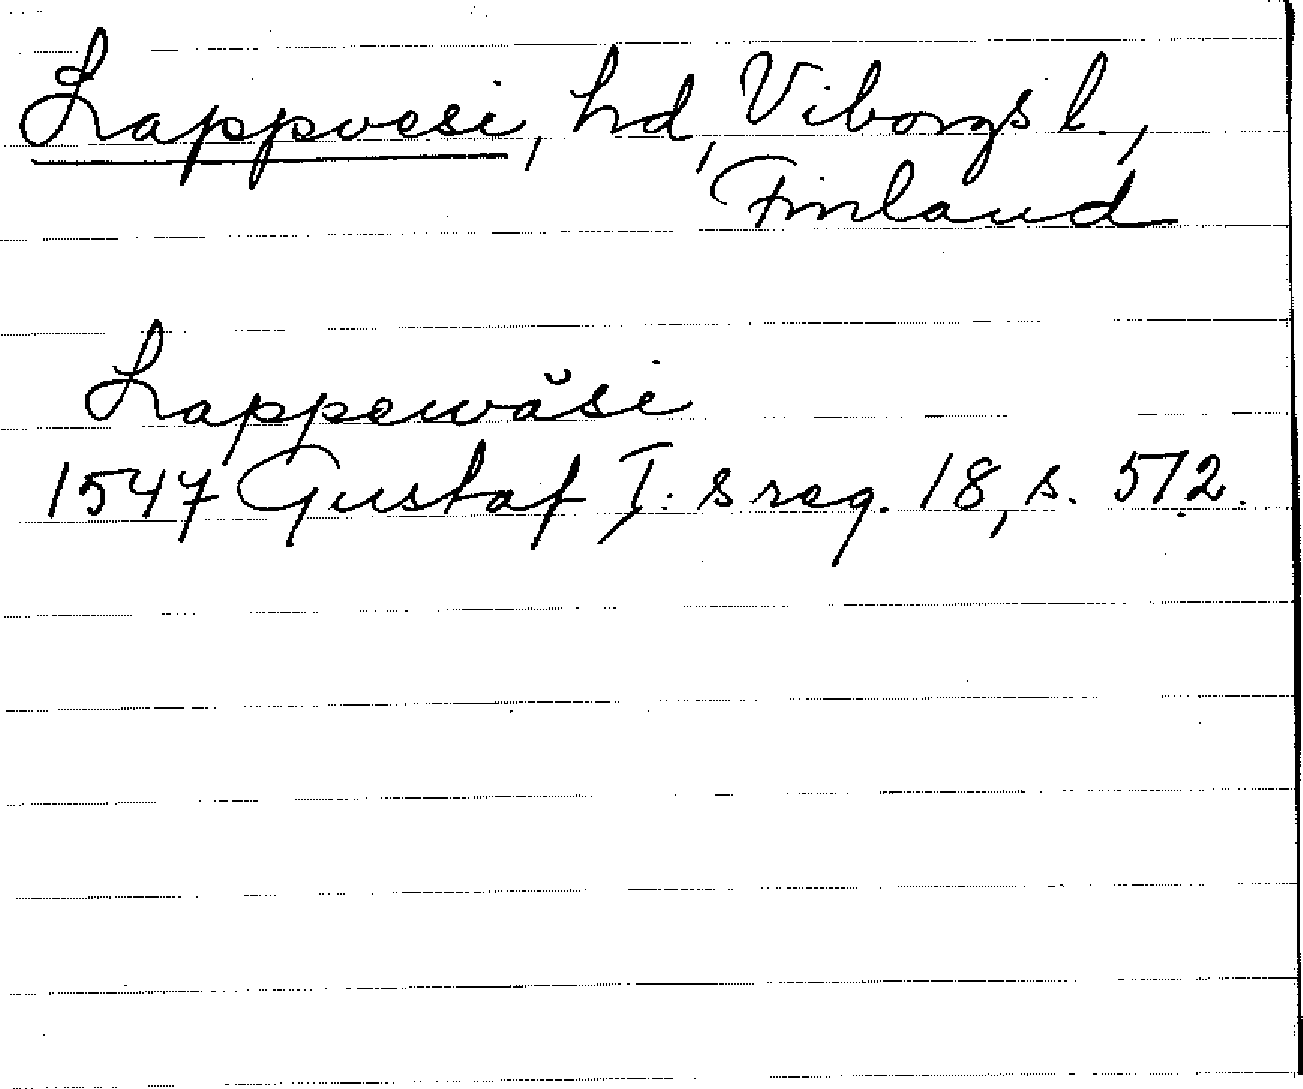 Lappvesi, hd, Viborgs l.,
Finland
Lappewäsi
1547 Gustaf I:s reg. 18, s. 572.